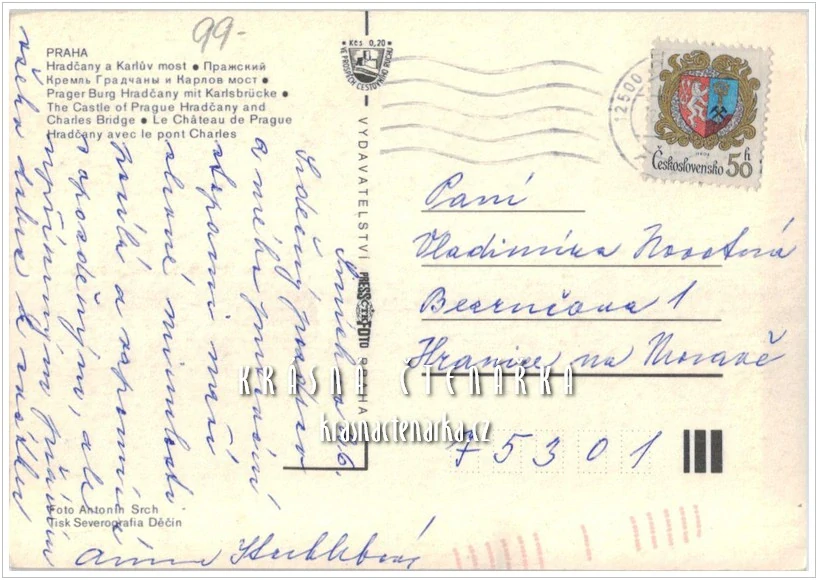 99-
PRAHA
Hradčany a Karlův most • Пражский
Кремль Градчаны и Карлов мост •
Prager Burg Hradčany mit Karlsbrücke •
The Castle of Prague Hradčany and
Charles Bridge • Le Château de Prague
Hradčany avec le pont Charles
Kčs 0,20
VE PROSPĚCH CESTOVNÍHO RUCHU
VYDAVATELSTVÍ PRESSFOTO PRAHA
12500
Československo 50 h
Paní
Vladimíra Novotová
Bezručova 1
Hranice na Moravě
75301
Srdečný pozdrav
a
minulosti
a zapomíná
s opozděným, ale
upřímným přáním
všeho dobra k svátku
Anna
KRÁSNÁ ČTENÁŘKA
krasnactenarka.cz
Foto Antonín Srch
Tisk Severografia Děčín